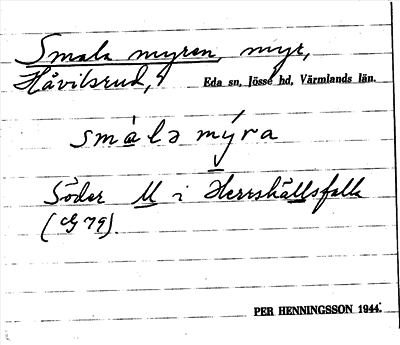 Smala myren, myr,
Håvilsrud, Eda sn, Jösse hd, Värmlands län.
smalə myra
Söder M i Herrshällsfalla
(G 79).
PER HENNINGSSON 1944.